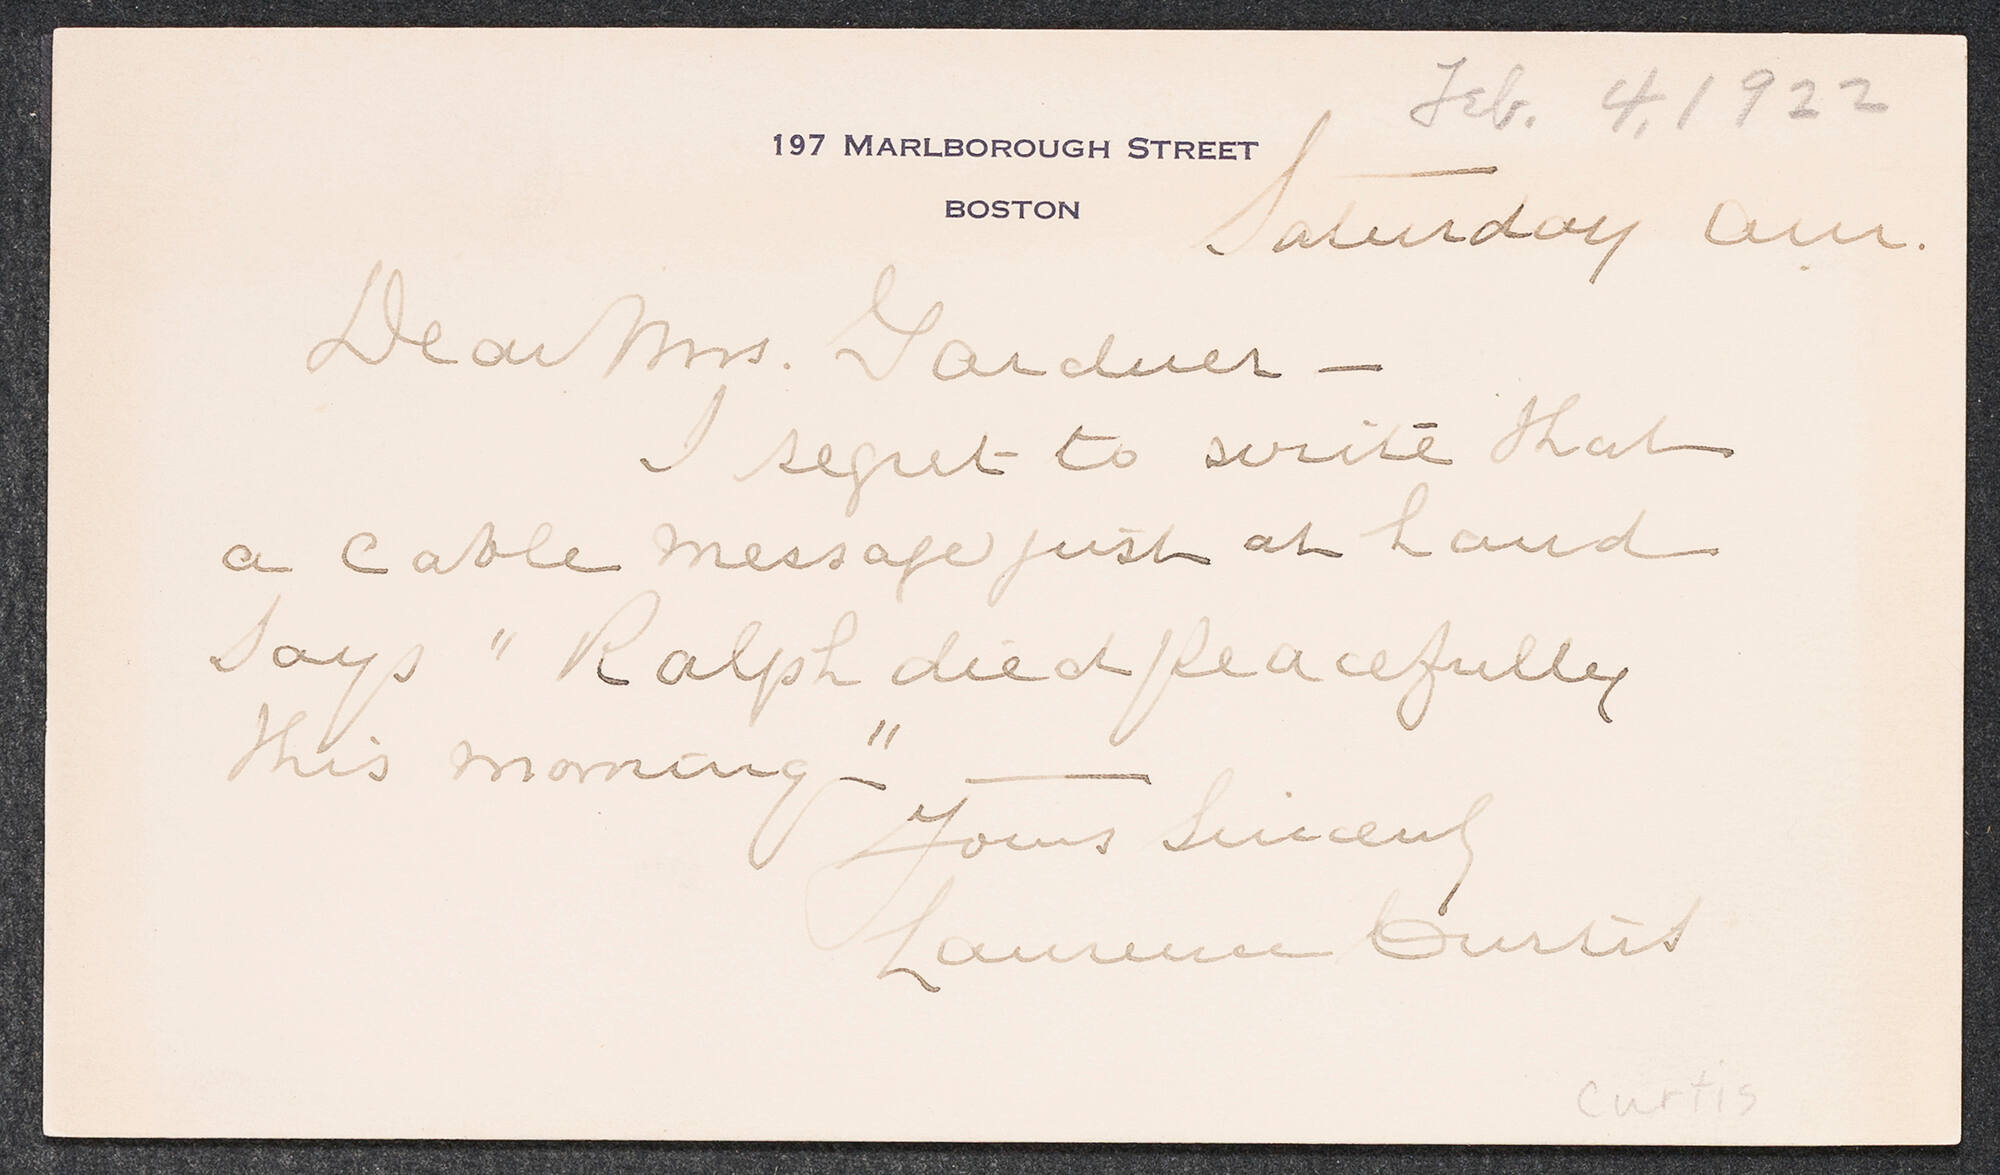 Feb. 4, 1922
197 MARLBOROUGH STREET
BOSTON
Saturday am.
Dear Mrs. Gardner —
I regret to write that
a cable message just at hand
says "Ralph died peacefully
this morning" —
Yours sincerely
Laurence Curtis
Curtis